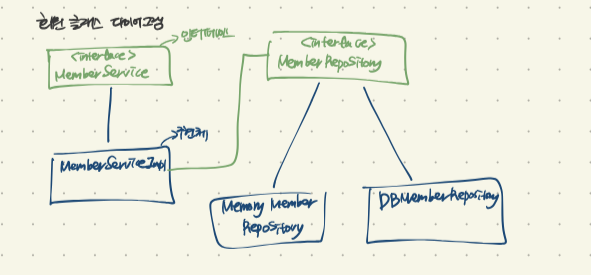 회원 클래스 다이어그램
인터페이스
<interface>
MemberService
<interface>
MemberRepository
구현체
MemberServiceImpl
Memory Member
Repository
DBMemberRepository